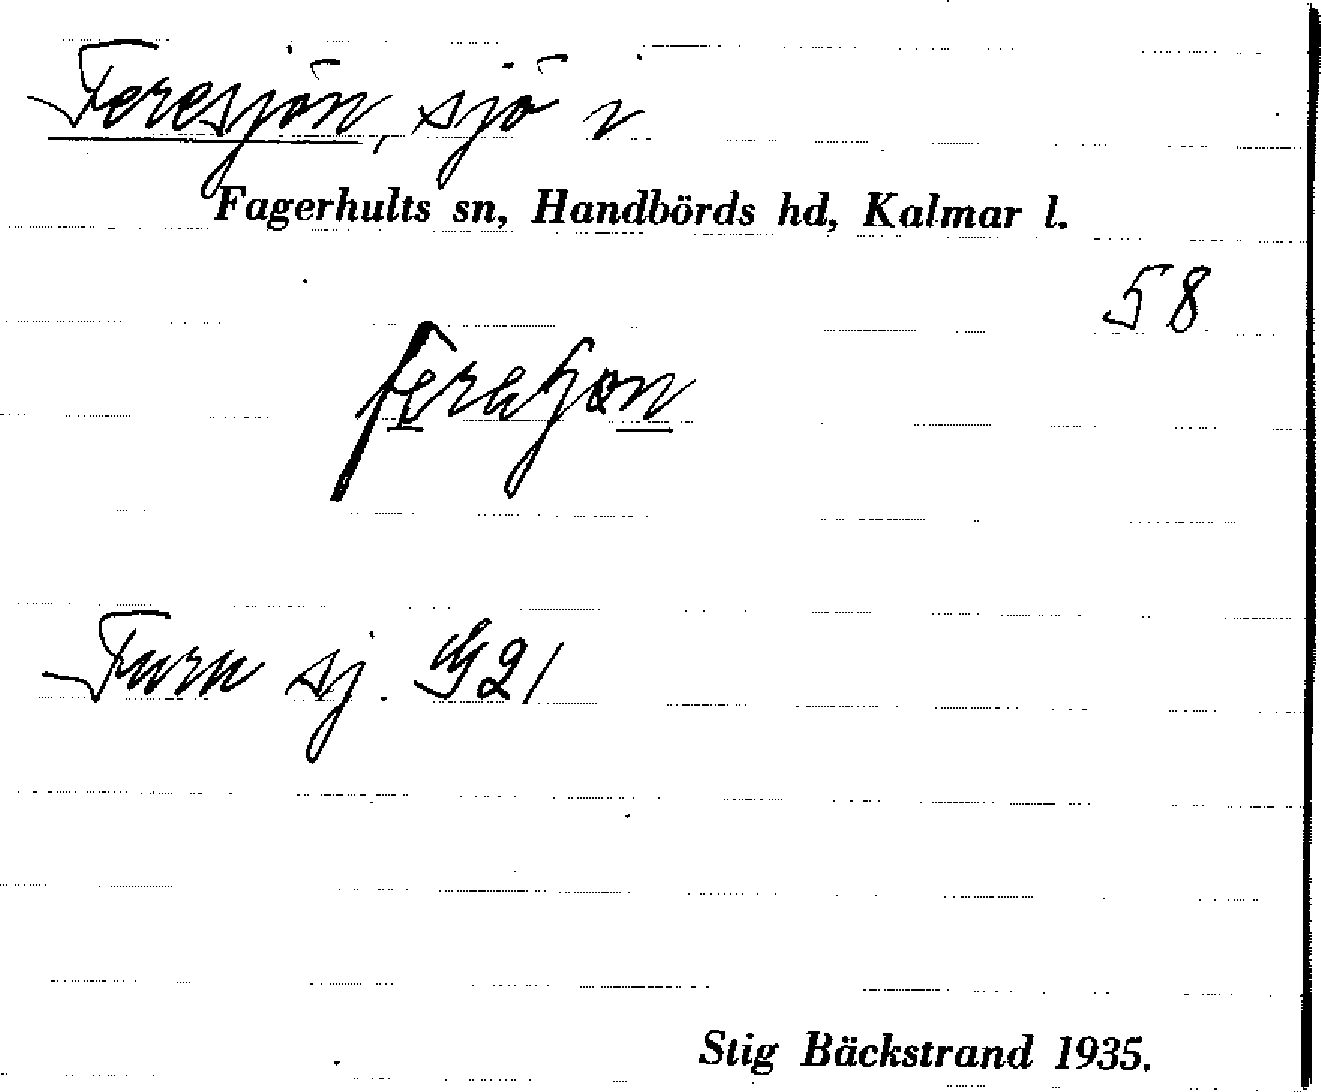 Feresjön, sjö i
Fagerhults sn, Handbörds hd, Kalmar l.
58
Furu sj. G21
Stig Bäckstrand 1935.